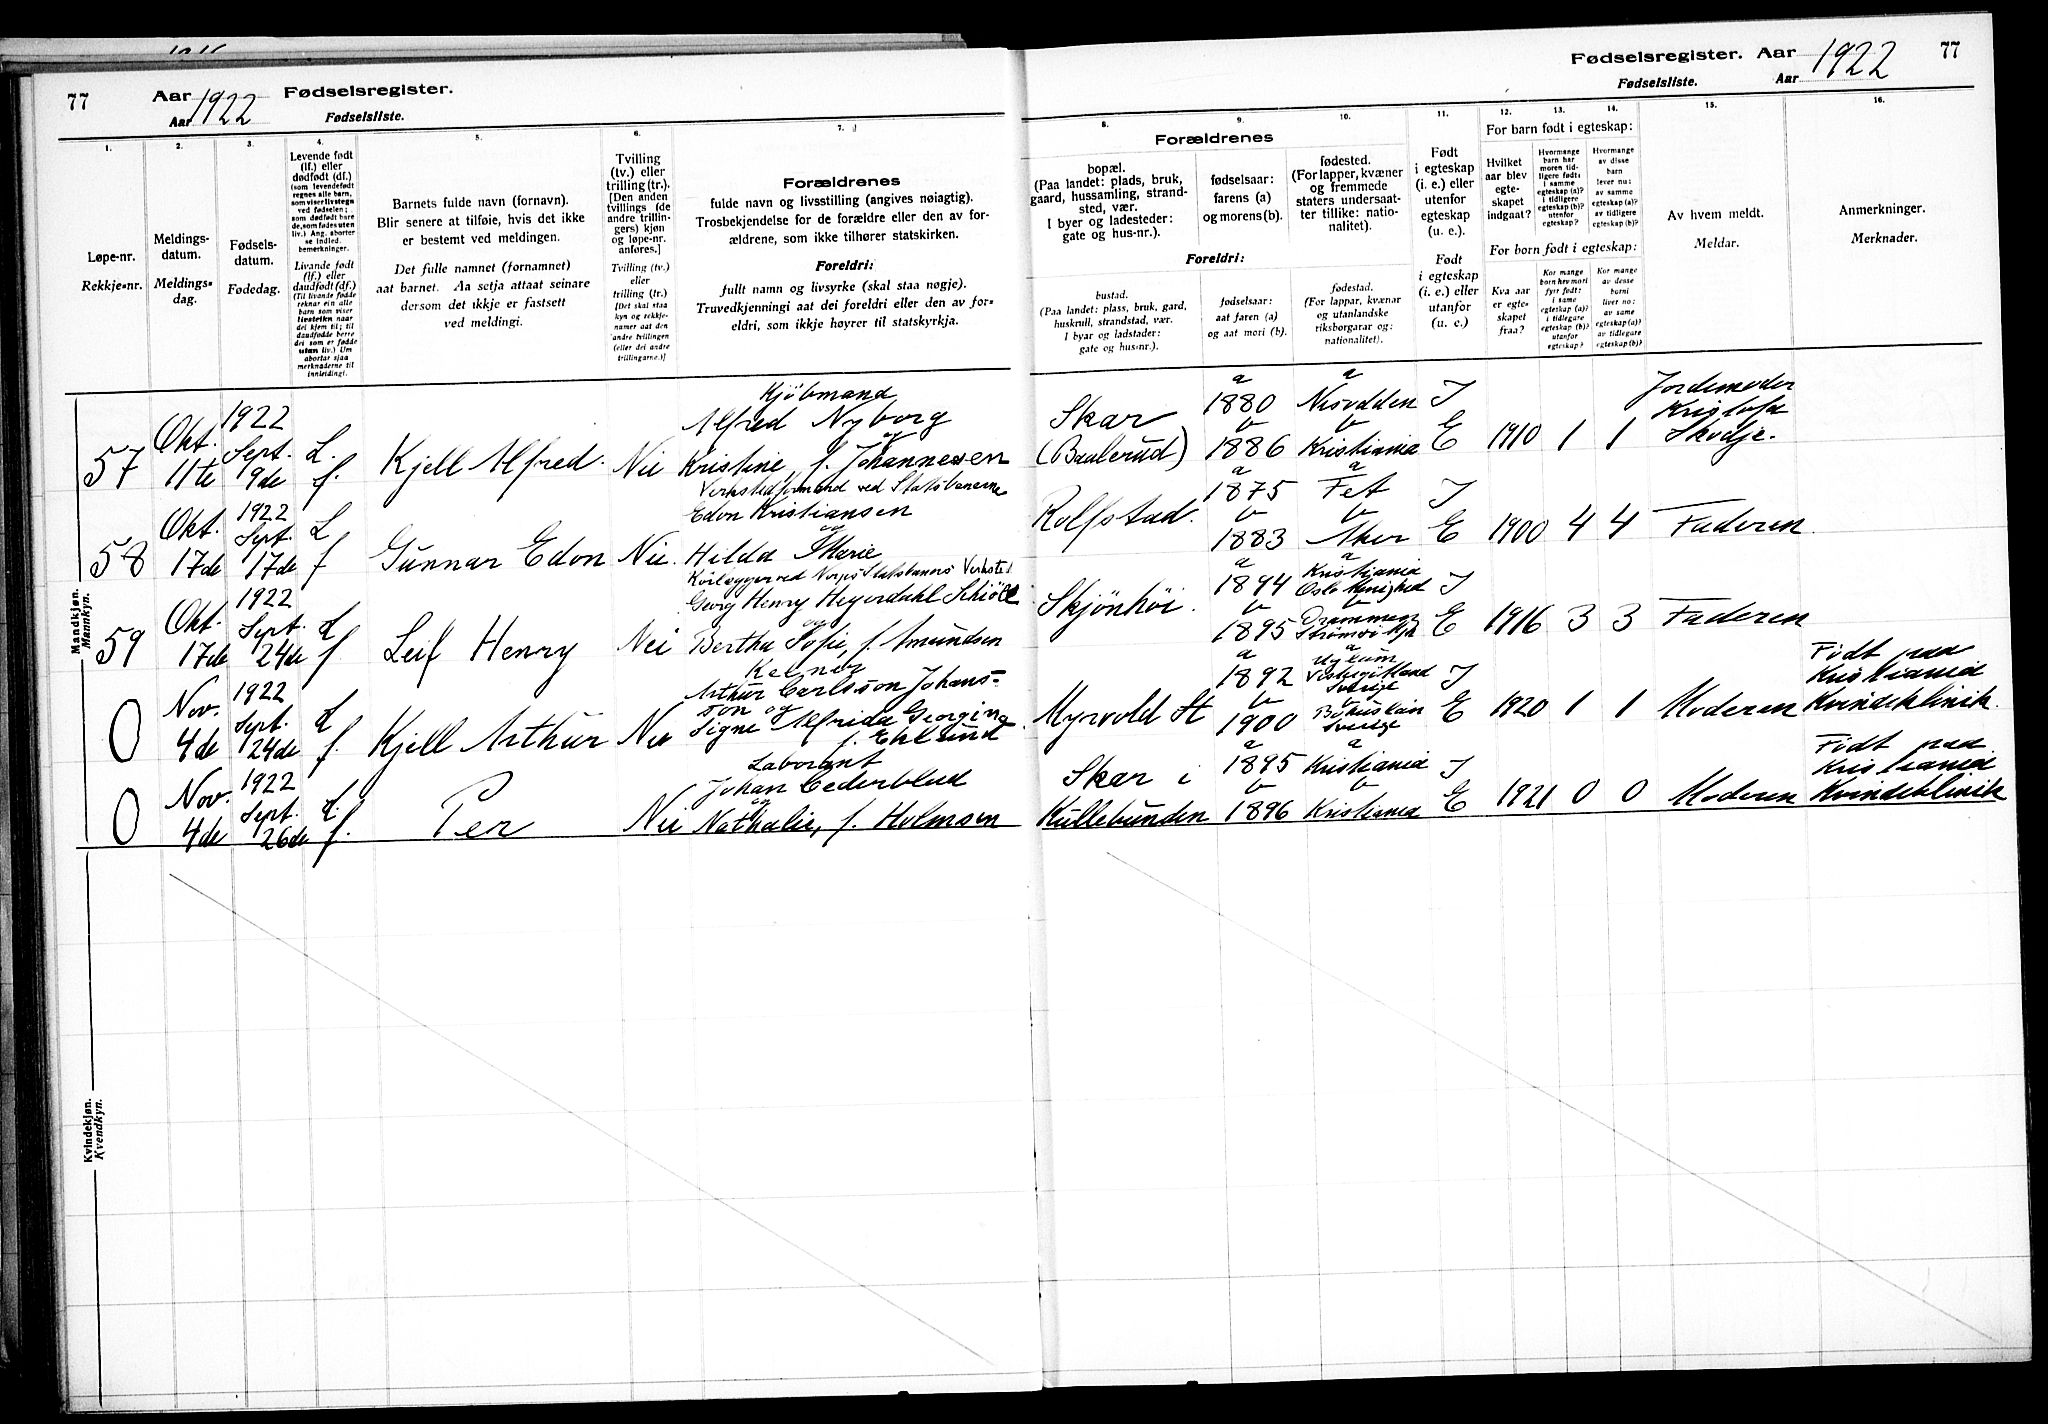 77 Aar 1922 Fødselsregister.
Aar Fødselsliste.
1. 2. 3. 4. 5. 6. 7.
Løpe-nr.
Rekkje-nr.
Meldings-
datum.
Meldings-
dag.
Fødsels-
datum.
Fødedag.
Levende født
(lf.) eller
dødfødt (df.)
(som levendefødt
regnes alle barn,
som viser livstegn
ved fødselen;
som dødfødt bare
de, som fødes uten
liv.) Ang. aborter
se indled.
bemerkninger.
Livande født
(lf.) eller
daudfødt (df.)
(Til livande fødde
reknar ein alle
barn som viser
livsteikn naar
dei kjem til; til
daudfødde berre
dei som er fødde
utan liv.) Um
abortar sjaa
merknaderne til
innleidingi.
Barnets fulde navn (fornavn).
Blir senere at tilføie, hvis det ikke
er bestemt ved meldingen.
Det fulle namnet (fornamnet)
aat barnet. Aa setja attaat seinare
dersom det ikkje er fastsett
ved meldingi.
Tvilling
(tv.) eller
trilling (tr.).
[Den anden
tvillings (de
andre trillin-
gers) kjøn
og løpe-nr.
anføres.]
Tvilling (tv.)
eller
trilling (tr.)
[Det skal staa
kyn og rekkje-
numer aat den
andre tvillingen
(eller dei andre
trillingarne.)]
Forældrenes
fulde navn og livsstilling (angives nøiagtig).
Trosbekjendelse for de forældre eller den av for-
ældrene, som ikke tilhører statskirken.
Foreldri:
fullt namn og livsyrke (skal staa nøgje).
Truvedkjenningi aat dei foreldri eller den av for-
eldri, som ikkje høyrer til statskyrkja.
Mandkjøn.
Mannkyn.
57 Okt. 11te 1922 Sept. 9de L. f. Kjell Alfred. Nei
Kjöbmand
Alfred Nyborg
og
Kristine, f. Johannessen
58 Okt. 17de 1922 Sept. 17de L f Gunnar Edon Nei.
Verkstedformand ved Statsbanerne
Edon Kristiansen
og
Hilda Marie
59 Okt. 17de 1922 Sept. 24de L f Leif Henry Nei
Georg Henry Heyerdahl Schiötz
og
Bertha Sofie, f. Amundsen
0 Nov. 4de 1922 Sept. 24de L f. Kjell Arthur Nei
Kelner
Arthur Carlsson Johans-
son og
Signe Alfrida Georgina
f. Eklund
0 Nov. 4de 1922 Sept. 26de L. f. Per Nei
Laborant
Johan Cederblad
og
Nathalie, f. Holmsen
Kvindekjøn.
Kvendkyn.
Fødselsregister. Aar 1922 77
Fødselsliste. Aar
8. 9. 10. 11. 12. 13. 14. 15. 16.
Forældrenes
bopæl.
(Paa landet: plads, bruk,
gaard, hussamling, strand-
sted, vær.
I byer og ladesteder:
gate og hus-nr.).
fødselsaar:
farens (a)
og morens (b).
fødested.
(For lapper, kvæner
og fremmede
staters undersaat-
ter tillike: natio-
nalitet).
Foreldri:
bustad.
(Paa landet: plass, bruk, gard,
huskrull, strandstad, vær.
I byar og ladstader:
gate og hus-nr.).
fødselsaar:
aat faren (a)
og aat mori (b).
fødestad.
(For lappar, kvænar
og utanlandske
riksborgarar og:
nationalitet).
Født
i egteskap
(i. e.) eller
utenfor
egteskap
(u. e.).
Født
i egteskap
(i. e.) eller
utanfor
(u. e.)
For barn født i egteskap:
Hvilket
aar blev
egte-
skapet
indgaat?
Hvormange
barn har
moren tid-
ligere født:
i samme
egteskap (a)?
i tidligere
egteskap (b)?
utenfor
egteskap?
Hvormange
av disse
barn
lever nu:
av samme
egteskap (a)?
av tidligere
egteskap (b)?
For born født i egteskap:
Kva aar
er egte-
skapet
fraa?
Kor mange
born hev mori
fyrr født:
i same
egteskap (a)?
i tidlegare
egteskap (b)?
utanfor
egteskap?
Kor mange
av desse
borni
liver no:
av same
egteskap (a)?
av tidlegare
egteskap (b)?
Av hvem meldt.
Meldar.
Anmerkninger.
Merknader.
Skar
(Baalerud) a 1880 b 1886 a Nesodden b Kristiania I E 1910 1 1 Jordemoder
Skodje.
Rolfstad. a 1875 b 1883 a Fet b Aker I E 1900 4 4 Faderen.
Skjönhöi. a 1894 b 1895 a Kristiania
b Drammen
I E 1916 3 3 Faderen
Myrvold St a 1892 b 1900 a
Sverige
b
Sverige I E 1920 1 1 Moderen Født paa
Kristiania
Kvindeklinik.
Skar i
Kullebunden a 1895 b 1896 a Kristiania b Kristiania I E 1921 0 0 Moderen Født paa
Kristiania
Kvindeklinik